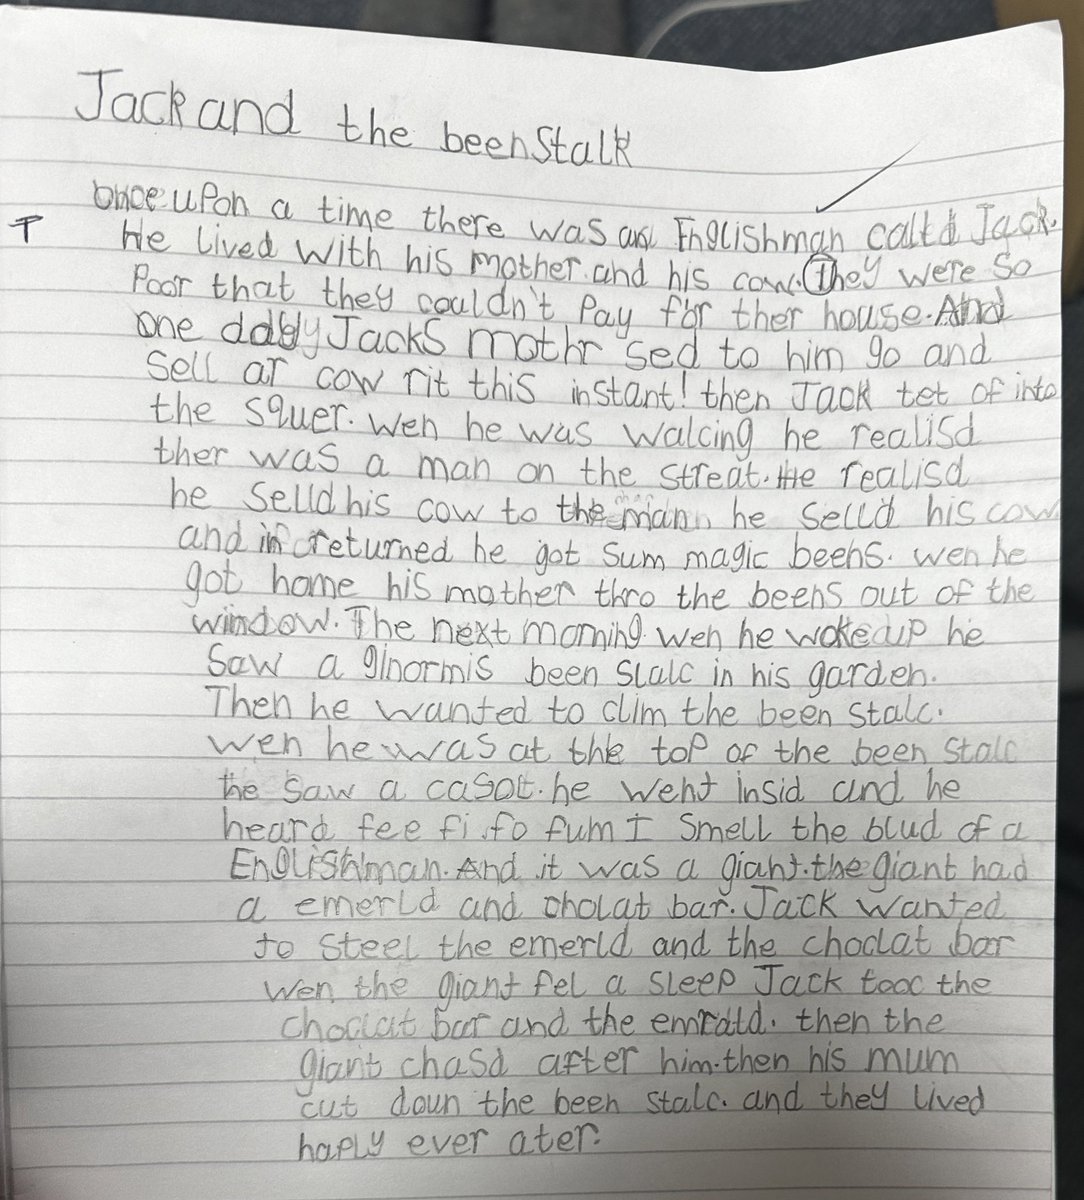 Jack and the beenstalk
once upon a time there was an Englishman calld Jack.
T He lived with his mother and his cow. They were so
Poor that they couldn't Pay for ther house. And
one day Jacks mothr sed to him go and
Sell ar cow rit this instant! then Jack tet of into
the squer. wen he was walcing he realisd
ther was a man on the streat. He realisd
he selld his cow to the man he selld his cow
and in returned he got sum magic beens. wen he
got home his mother thro the beens out of the
window. The next morning wen he woke up he
Saw a ginormis been stalc in his garden.
Then he wanted to clim the been stalc.
wen he was at the top of the been stalc
he saw a casolt. he went insid and he
heard fee fi fo fum I smell the blud of a
Englishman. And it was a giant. the giant had
a emerld and cholat bar. Jack wanted
to steel the emerld and the choclat bar
wen the giant fel a sleep Jack tooc the
choclat bar and the emrald. then the
giant chasd after him. then his mum
cut doun the been stalc. and they lived
haply ever ater.